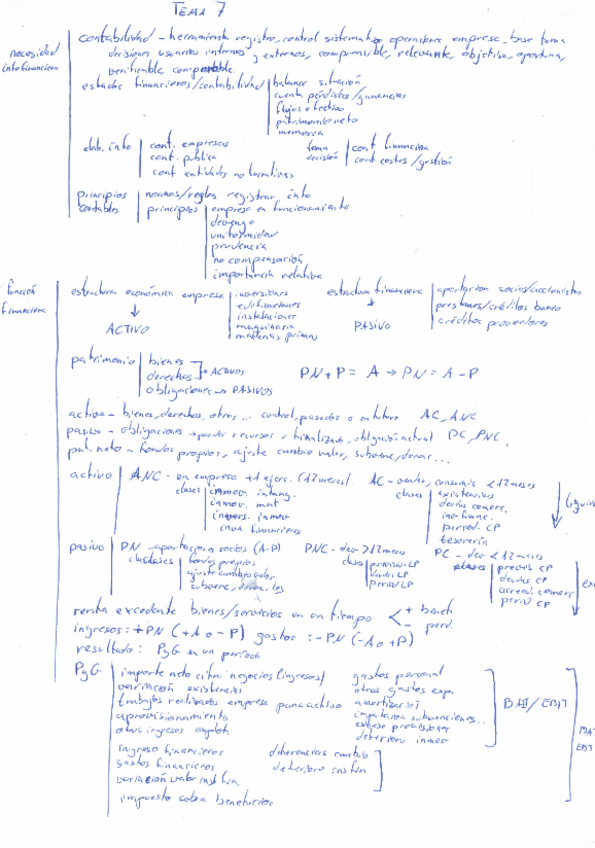 TEMA 7
necesidad info financiera
contabilidad - herramienta registro, control sistemático operaciones empresa, base toma
decisiones usuarios internos y externos, comprensible, relevante, objetiva, oportuna,
verificable, comparable.
estados financieros/contabilidad | balance situación
cuenta pérdidas/ganancias
flujos efectivo
patrimonio neto
memoria
elab. info | cont. empresas
cont. pública
cont entidades no lucrativas
toma decisión | cont financiera
cont costes/gestión
principios contables | normas/reglas registrar info
principios | empresa en funcionamiento
devengo
uniformidad
prudencia
no compensación
importancia relativa
función financiera
estructura económica empresa | inversiones
edificaciones
instalaciones
maquinaria
materias primas
↓
ACTIVO
estructura financiera | aportación socios/accionistas
prestamos/créditos banco
créditos proveedores
↓
PASIVO
patrimonio | bienes
derechos → ACTIVOS
obligaciones → PASIVOS
PN + P = A → PN = A - P
activo - bienes, derechos, otros ... control, pasados o futuro AC, ANC
pasivo - obligaciones → perder recursos, obligación actual PC, PNC,
pat. neto - fondos propios, ajuste cambio valor, subvenc, donac ...
activo | ANC - en empresa +1 ejerc. (12 meses)
clases | inmov. intang.
inmov. mat
invers. inmov
inver financieras
AC - vender, consumir < 12 meses
clases | existencias
deudas comerc.
inv financ.
period. CP
tesorería
pasivo | PN - aportaciones socios (A-P)
clases | fondos propios
ajuste cambio valor
subvenc, donac, leg
PNC - deu > 12 meses
clases | provis LP
deudas LP
period LP
PC - deu < 12 meses
clases | provis CP
deudas CP
acreed. comerc
period CP
renta excedente bienes/servicios en un tiempo < + benef.
- perd.
ingresos: + PN (+A o - P) gastos: - PN (-A o + P)
resultado: PyG en un período
PyG | importe neto cifra negocios (ingresos)
variación existencias
trabajos realizados empresa para activo
aprovisionamiento
otros ingresos explot
gastos personal
otros gastos exp.
amortización
imputación subvenciones...
exceso provisiones
deterioro inmov
BAII/EBIT
ingreso financieros
gastos financieros
variación valor inst fin.
diferencias cambio
deterioro inst fin
impuesto sobre beneficios